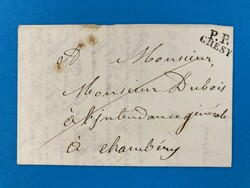 P.P.
GRESY
A Monsieur,
Monsieur Dubois
à l'intendance générale
à Chambéry